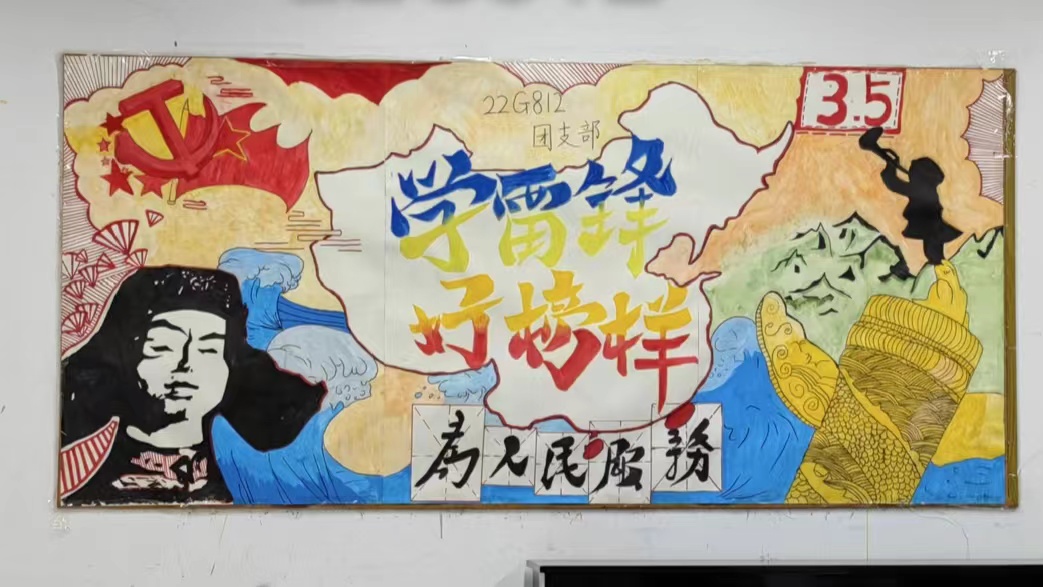 22G812
团支部
3.5
学雷锋
好榜样
為人民服務